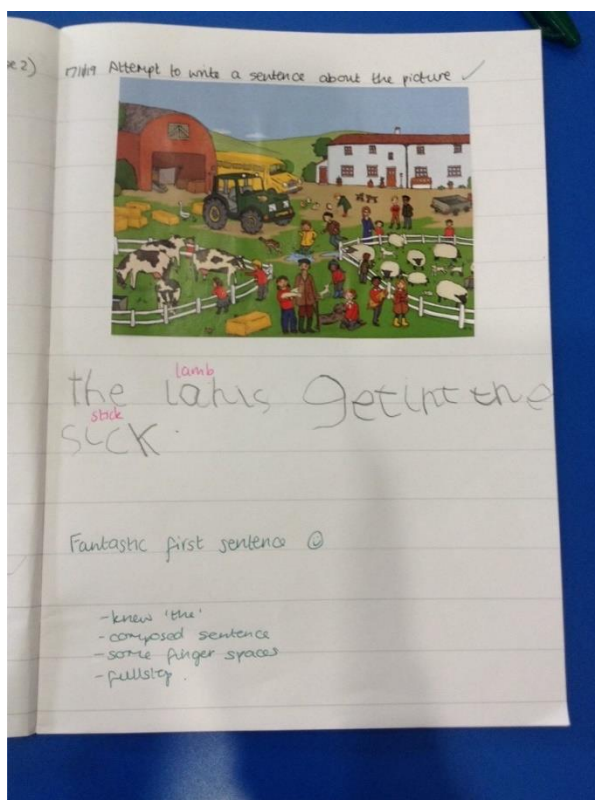 e 2)
17/1/19 Attempt to write a sentence about the picture ✓
lamb
the lahis getint the
stick
sick.
Fantastic first sentence ☺
- knew 'the'
- composed sentence
- some finger spaces
- fullstop.